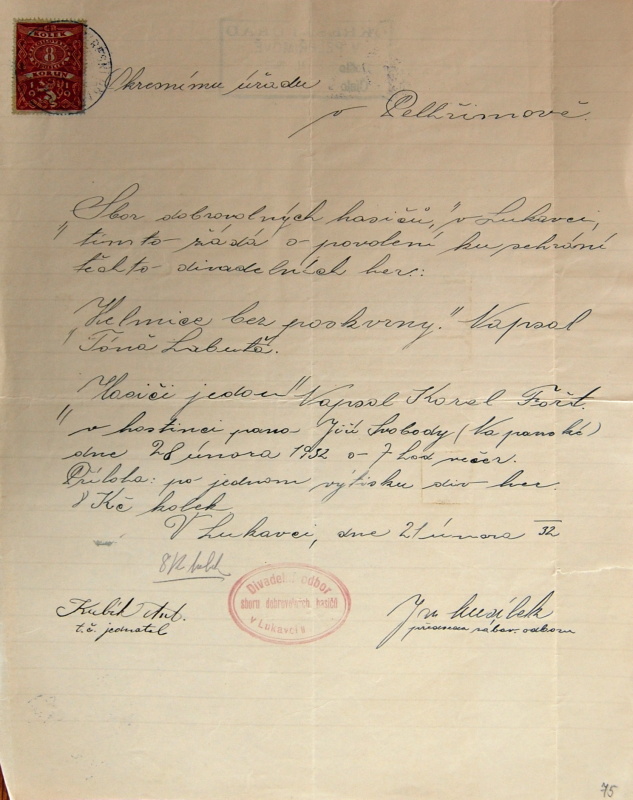 KOLEK
8
KORUN
Okresnímu úřadu
v Pelhřimově.
„Sbor dobrovolných hasičů," v Lukavci,
tímto žádá o povolení ku sehrání
těchto divadelních her:
„Helmice bez poskvrny." Napsal
Tóna Labuťa.
„Hasiči jedou" Napsal Karel Fořt.
v hostinci pana Jiří Svobody (Na panské)
dne 28 února 1932 o 7 hod večer.
Příloha: po jednom výtisku div her.
8 Kč kolek
V Lukavci, dne 21 února 32
Divadel. odbor
sboru dobrovolných hasičů
v Lukavci
Kubát Ant.
t.č. jednatel
předseda zábav. odboru
75